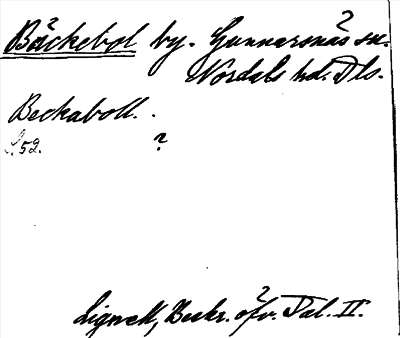 Bäckebol by. Gunnarsnäs sn.
Nordals hd. Dls.
Beckaboll.
S. 52. ?
Lignell, Beskr. öfv. Dal. II.